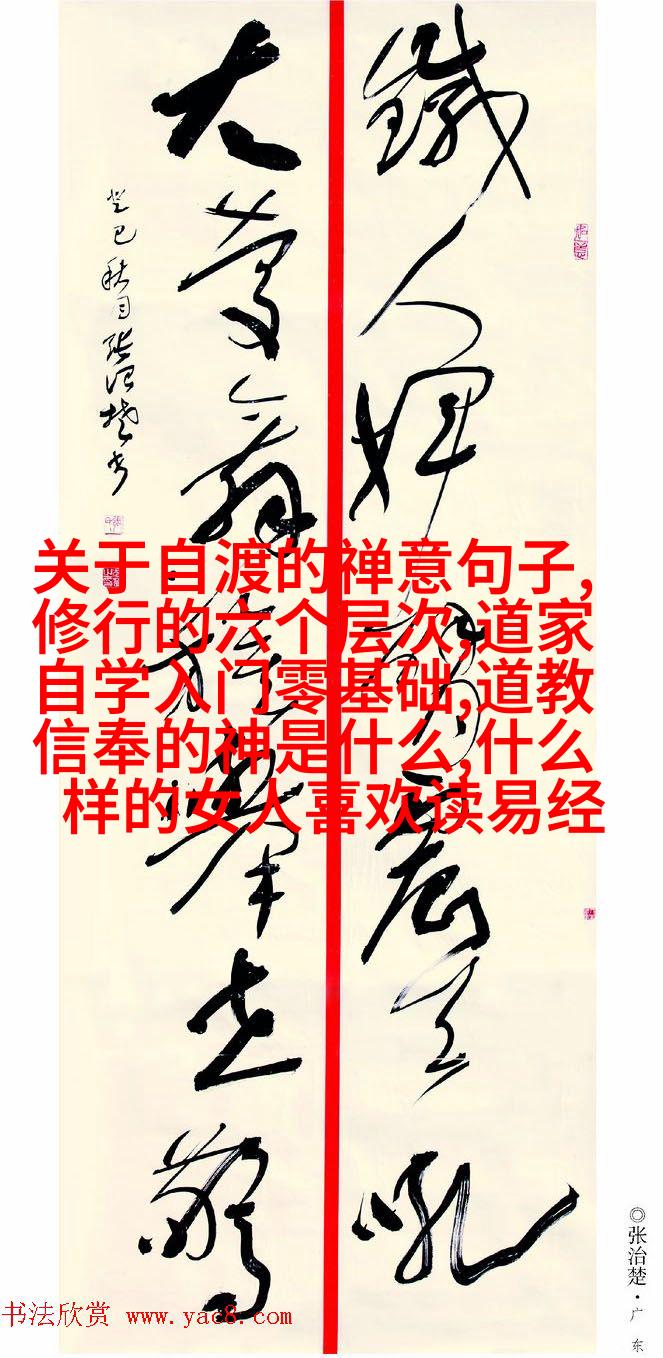 鐵人揮震天吼
大慶舉世驚
癸巳秋月張治楚書
关于自渡的禅意句子,
修行的六个层次,道家
自学入门零基础,道教
信奉的神是什么,什么
样的女人喜欢读易经
◎张治楚·广东
书法欣赏 www.yac8.com